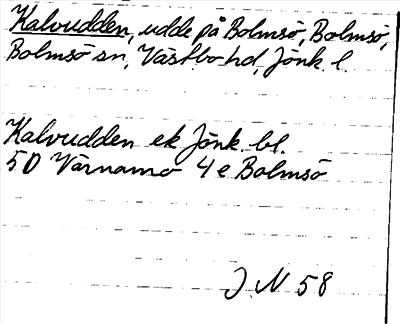 Kalvudden, udde på Bolmsö, Bolmsö,
Bolmsö sn, Västbo hd, Jönk. l.
Kalvudden ek Jönk. bl.
5D Värnamo 4e Bolmsö
J N 58